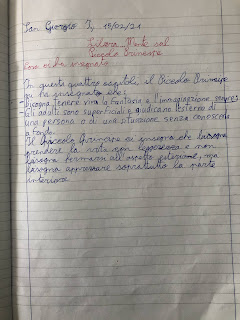 San Giorgio J, 15/02/21
Lettura
Piccolo Principe
Cosa ci ha insegnato
In questi quattro capitoli il Piccolo Principe
ci ha insegnato che:
- bisogna tenere viva la fantasia e l'immaginazione sempre;
- gli adulti sono superficiali e giudicano l'esterno di
una persona o di una situazione senza conoscerle
a fondo.
Il Piccolo Principe ci insegna che bisogna
prendere la vita con leggerezza e non
bisogna fermarsi all'aspetto esteriore, ma
bisogna apprezzare soprattutto la parte
interiore